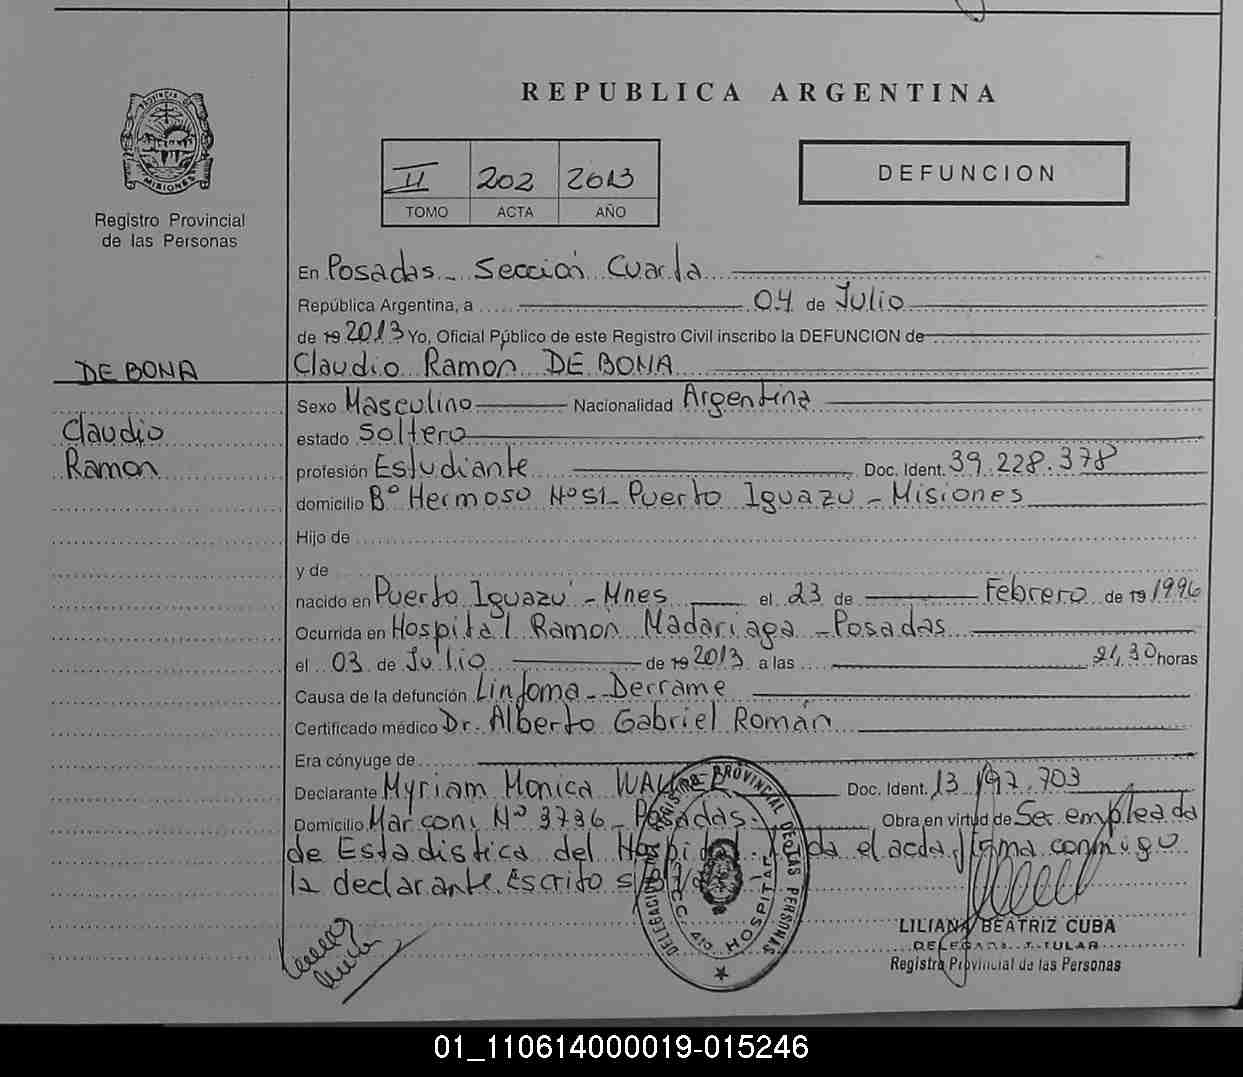 REPUBLICA ARGENTINA
PROVINCIA DE MISIONES
Registro Provincial
de las Personas
II 202 2013
TOMO ACTA AÑO
DEFUNCION
En Posadas - Sección Cuarta
República Argentina, a 04 de Julio
de 19 2013 Yo, Oficial Público de este Registro Civil inscribo la DEFUNCION de
DE BONA
Claudio Ramón DE BONA
Claudio
Ramon
Sexo Masculino Nacionalidad Argentina
estado Soltero
profesión Estudiante Doc. Ident. 39.228.378
domicilio Bº Hermoso Nº S1- Puerto Iguazu - Misiones
Hijo de
y de
nacido en Puerto Iguazú - Mnes el 23 de Febrero de 19 1996
Ocurrida en Hospital Ramon Madariaga - Posadas
el 03 de Julio de 19 2013 a las 21,30 horas
Causa de la defunción Linfoma - Derrame
Certificado médico Dr. Alberto Gabriel Román
Era cónyuge de
Declarante Myriam Monica Doc. Ident. 13.197.703
Domicilio Marconi Nº 3736 - Posadas - Obra en virtud de Ser empleada
de Estadistica del Hospital el acta firma conmigo
la declarante. Escrito s/
DELEGACION REGISTRO PROVINCIAL DE LAS PERSONAS
HOSPITAL
LILIANA BEATRIZ CUBA
DELEGADA TITULAR
Registro Provincial de las Personas
01_110614000019-015246